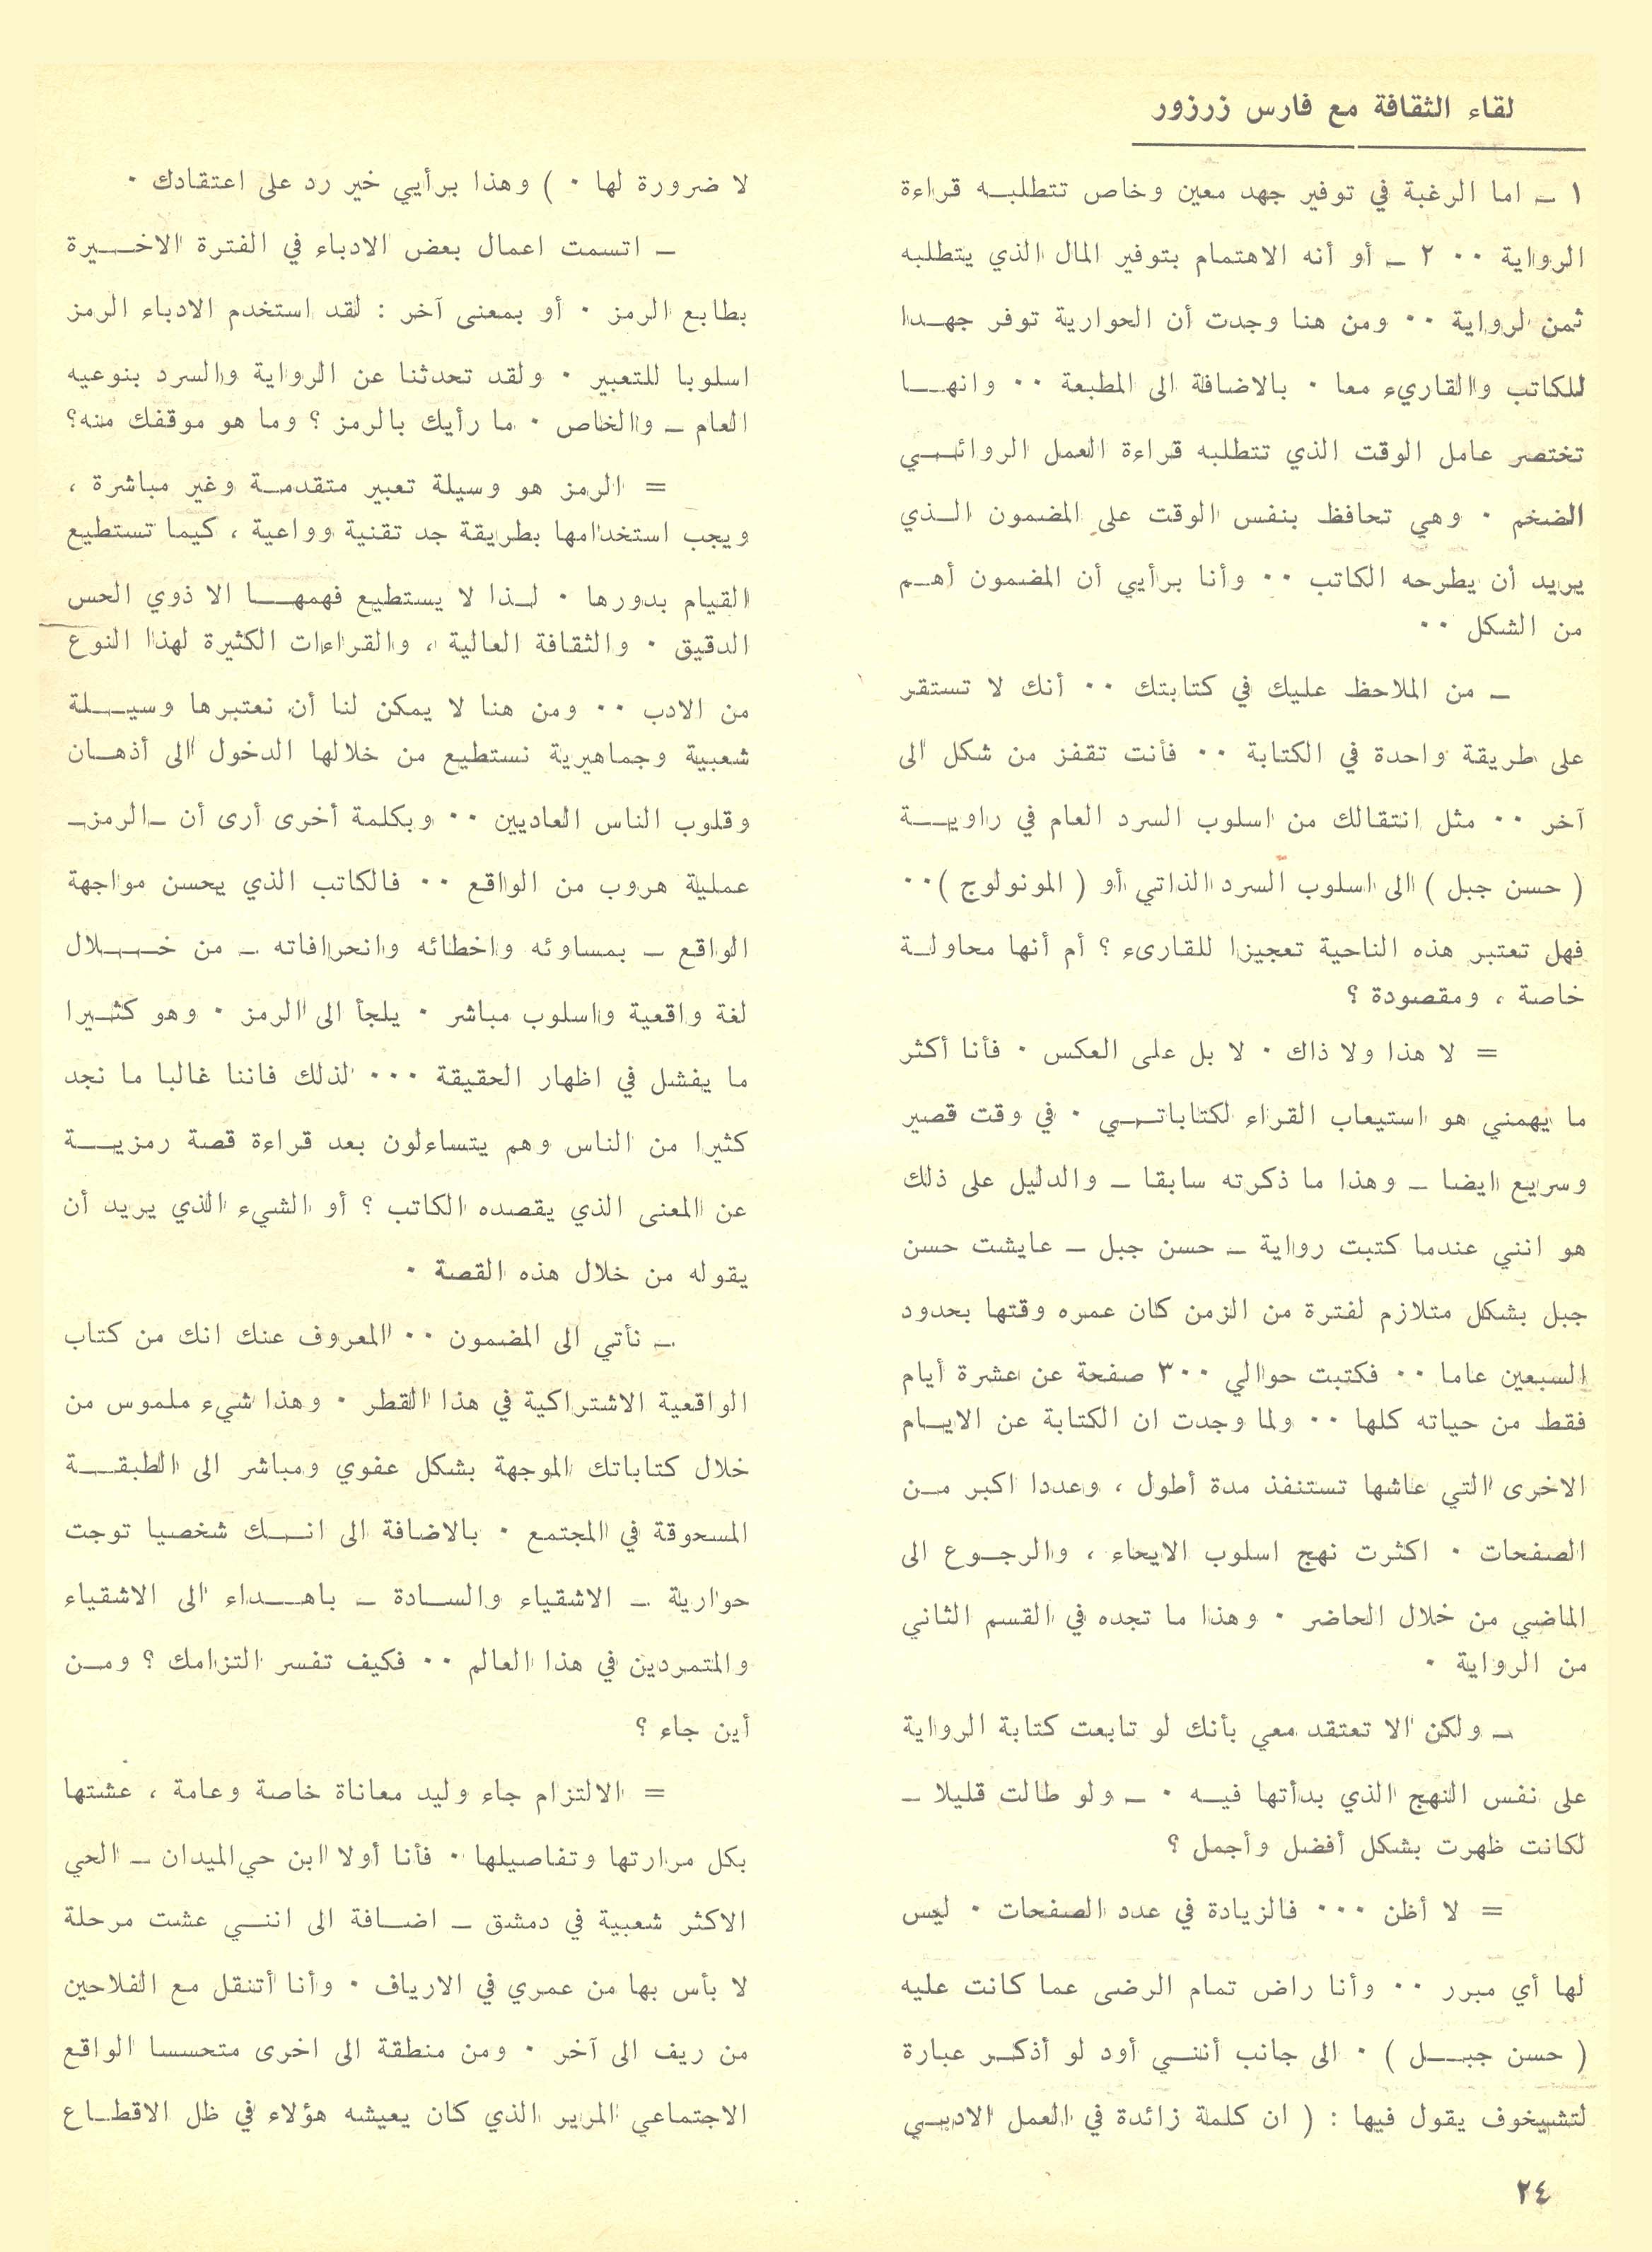 لقاء الثقافة مع فارس زرزور
١ ــ اما الرغبة في توفير جهد معين وخاص تتطلبـه قراءة
الرواية ٠٠ ٢ ــ أو أنه الاهتمام بتوفير المال الذي يتطلبه
ثمن لرواية ٠٠ ومن هنا وجدت أن الحوارية توفر جهـدا
للكاتب والقاريء معا ٠ بالاضافة الى المطبعة ٠٠ وانهـا
تختصر عامل الوقت الذي تتطلبه قراءة العمل الروائـي
الضخم ٠ وهي تحافظ بنفس الوقت على المضمون الـذي
يريد أن يطرحه الكاتب ٠٠ وأنا برأيي أن المضمون أهـم
من الشكل ٠٠
ــ من الملاحظ عليك في كتابتك ٠٠ أنك لا تستقر
على طريقة واحدة في الكتابة ٠٠ فأنت تقفز من شكل الى
آخر ٠٠ مثل انتقالك من اسلوب السرد العام في راويـة
( حسن جبل ) الى اسلوب السرد الذاتي أو ( المونولوج ) ٠٠
فهل تعتبر هذه الناحية تعجيزا للقارىء ؟ أم أنها محاولـة
خاصة ، ومقصودة ؟
= لا هذا ولا ذاك ٠ لا بل على العكس ٠ فأنا أكثر
ما يهمني هو استيعاب القراء لكتاباتـي ٠ في وقت قصير
وسريع ايضا ــ وهذا ما ذكرته سابقا ــ والدليل على ذلك
هو انني عندما كتبت رواية ــ حسن جبل ــ عايشت حسن
جبل بشكل متلازم لفترة من الزمن كان عمره وقتها بحدود
السبعين عاما ٠٠ فكتبت حوالي ٣٠٠ صفحة عن عشرة أيام
فقط من حياته كلها ٠٠ ولما وجدت ان الكتابة عن الايـام
الاخرى التي عاشها تستنفذ مدة أطول ، وعددا اكبر مـن
الصفحات ٠ اكثرت نهج اسلوب الايحاء ، والرجـوع الى
الماضي من خلال الحاضر ٠ وهذا ما تجده في القسم الثاني
من الرواية ٠
ــ ولكن الا تعتقد معي بأنك لو تابعت كتابة الرواية
على نفس النهج الذي بدأتها فيـه ٠ ــ ولو طالت قليلا ــ
لكانت ظهرت بشكل أفضل وأجمل ؟
= لا أظن ٠٠٠ فالزيادة في عدد الصفحات ٠ ليس
لها أي مبرر ٠٠ وأنا راض تمام الرضى عما كانت عليه
( حسن جبـل ) ٠ الى جانب أننـي أود لو أذكـر عبارة
لتشيخوف يقول فيها : ( ان كلمة زائدة في العمل الادبـي
لا ضرورة لها ٠ ) وهذا برأيي خير رد على اعتقادك ٠
ــ اتسمت اعمال بعض الادباء في الفترة الاخـيرة
بطابع الرمز ٠ أو بمعنى آخر : لقد استخدم الادباء الرمز
اسلوبا للتعبير ٠ ولقد تحدثنا عن الرواية والسرد بنوعيه
العام ــ والخاص ٠ ما رأيك بالرمز ؟ وما هو موقفك منه؟
= الرمز هو وسيلة تعبير متقدمـة وغير مباشرة ،
ويجب استخدامها بطريقة جد تقنية وواعية ، كيما تستطيع
القيام بدورها ٠ لـذا لا يستطيع فهمهـا الا ذوي الحس
الدقيق ٠ والثقافة العالية ، والقراءات الكثيرة لهذا النوع
من الادب ٠٠ ومن هنا لا يمكن لنا أن نعتبرها وسيـلة
شعبية وجماهيرية نستطيع من خلالها الدخول الى أذهـان
وقلوب الناس العاديين ٠٠ وبكلمة أخرى أرى أن ــ الرمز ــ
عملية هروب من الواقع ٠٠ فالكاتب الذي يحسن مواجهة
الواقع ــ بمساوئه واخطائه وانحرافاته ــ من خـلال
لغة واقعية واسلوب مباشر ٠ يلجأ الى الرمز ٠ وهو كثـيرا
ما يفشل في اظهار الحقيقة ٠٠٠ لذلك فاننا غالبا ما نجد
كثيرا من الناس وهم يتساءلون بعد قراءة قصة رمزيـة
عن المعنى الذي يقصده الكاتب ؟ أو الشيء الذي يريد أن
يقوله من خلال هذه القصة ٠
ــ نأتي الى المضمون ٠٠ المعروف عنك انك من كتاب
الواقعية الاشتراكية في هذا القطر ٠ وهذا شيء ملموس من
خلال كتاباتك الموجهة بشكل عفوي ومباشر الى الطبقـة
المسحوقة في المجتمع ٠ بالاضافة الى انـك شخصيا توجت
حوارية ــ الاشقياء والسـادة ــ باهـداء الى الاشقياء
والمتمردين في هذا العالم ٠٠ فكيف تفسر التزامك ؟ ومـن
أين جاء ؟
= الالتزام جاء وليد معاناة خاصة وعامة ، عشتها
بكل مرارتها وتفاصيلها ٠ فأنا أولا ابن حي الميدان ــ الحي
الاكثر شعبية في دمشق ــ اضـافة الى اننـي عشت مرحلة
لا بأس بها من عمري في الارياف ٠ وأنا أتنقل مع الفلاحين
من ريف الى آخر ٠ ومن منطقة الى اخرى متحسسا الواقع
الاجتماعي المرير الذي كان يعيشه هؤلاء في ظل الاقطـاع
٢٤